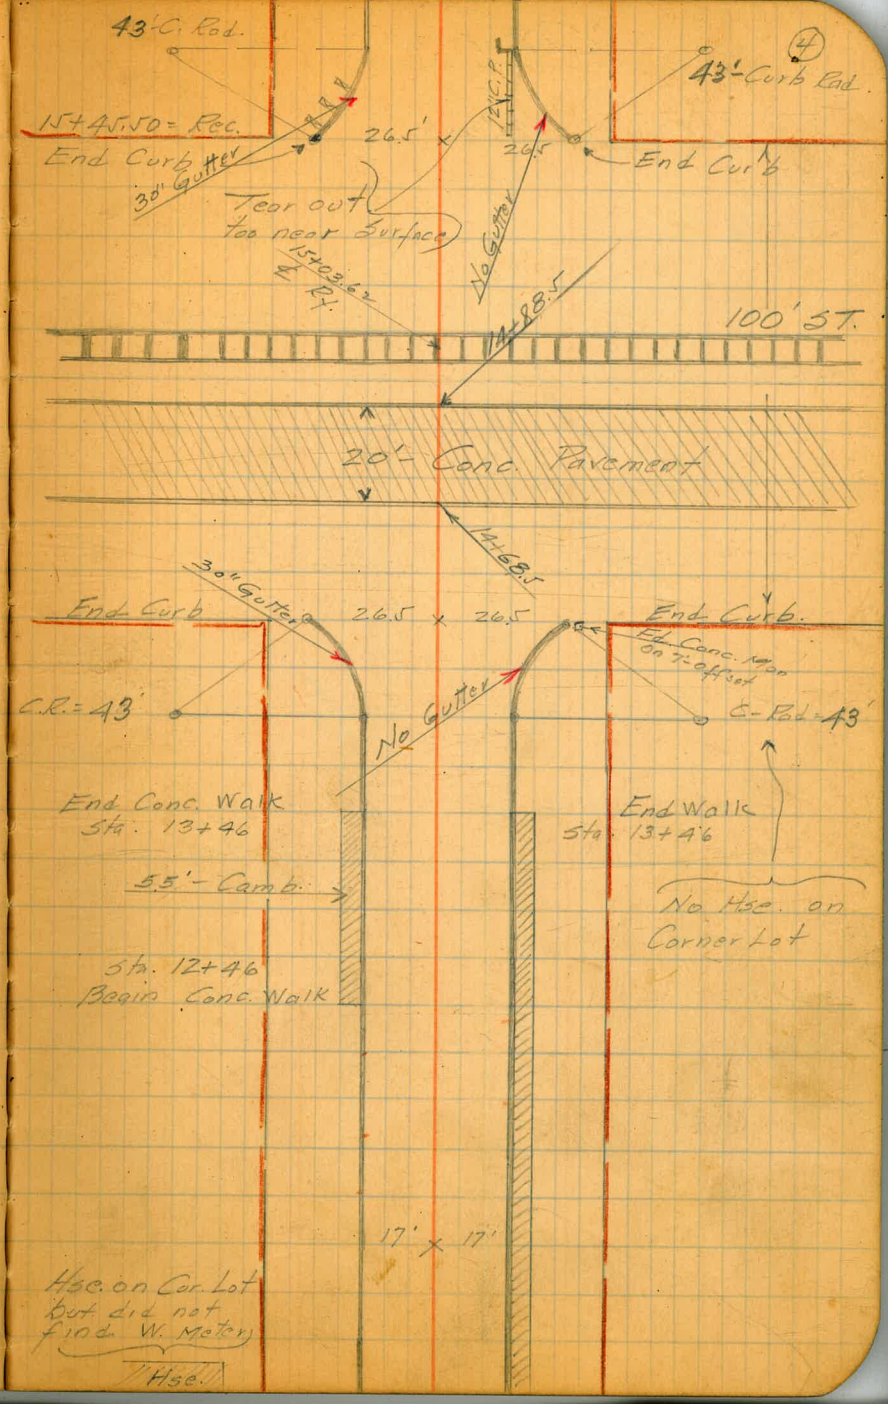 43'-C. Rad.
4
43'-Curb Rad.
12" C.P.
15+45.50 = Rec.
End Curb
30" Gutter
26.5' x 26.5
End Curb
Tear out
too near Surface
No Gutter
15+03.62
₵ Rt.
14+88.5
100' ST.
20'- Conc. Pavement
14+68.5
30" Gutter
End Curb
26.5 x 26.5
End Curb.
Fd Conc. Mon
on 7' offset
C.R. = 43'
No Gutter
C-Rad = 43'
End Conc. Walk
Sta. 13+46
End Walk
Sta. 13+46
5.5'- Comb.
No Hse. on
Corner Lot
Sta. 12+46
Begin Conc. Walk
17' x 17'
Hse. on Cor. Lot
but did not
find W. Meter
Hse.